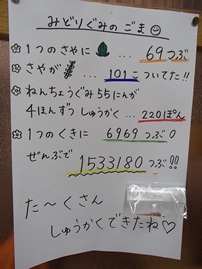 みどりぐみのごま
1つのさやに … 69つぶ
さやが … 101こついてた!!
ねんちょうぐみ55にんが
4ほんずつしゅうかく … 220ぽん
1つのくきに 6969つぶ
ぜんぶで
1533180つぶ!!
た〜くさん
しゅうかくできたね♡